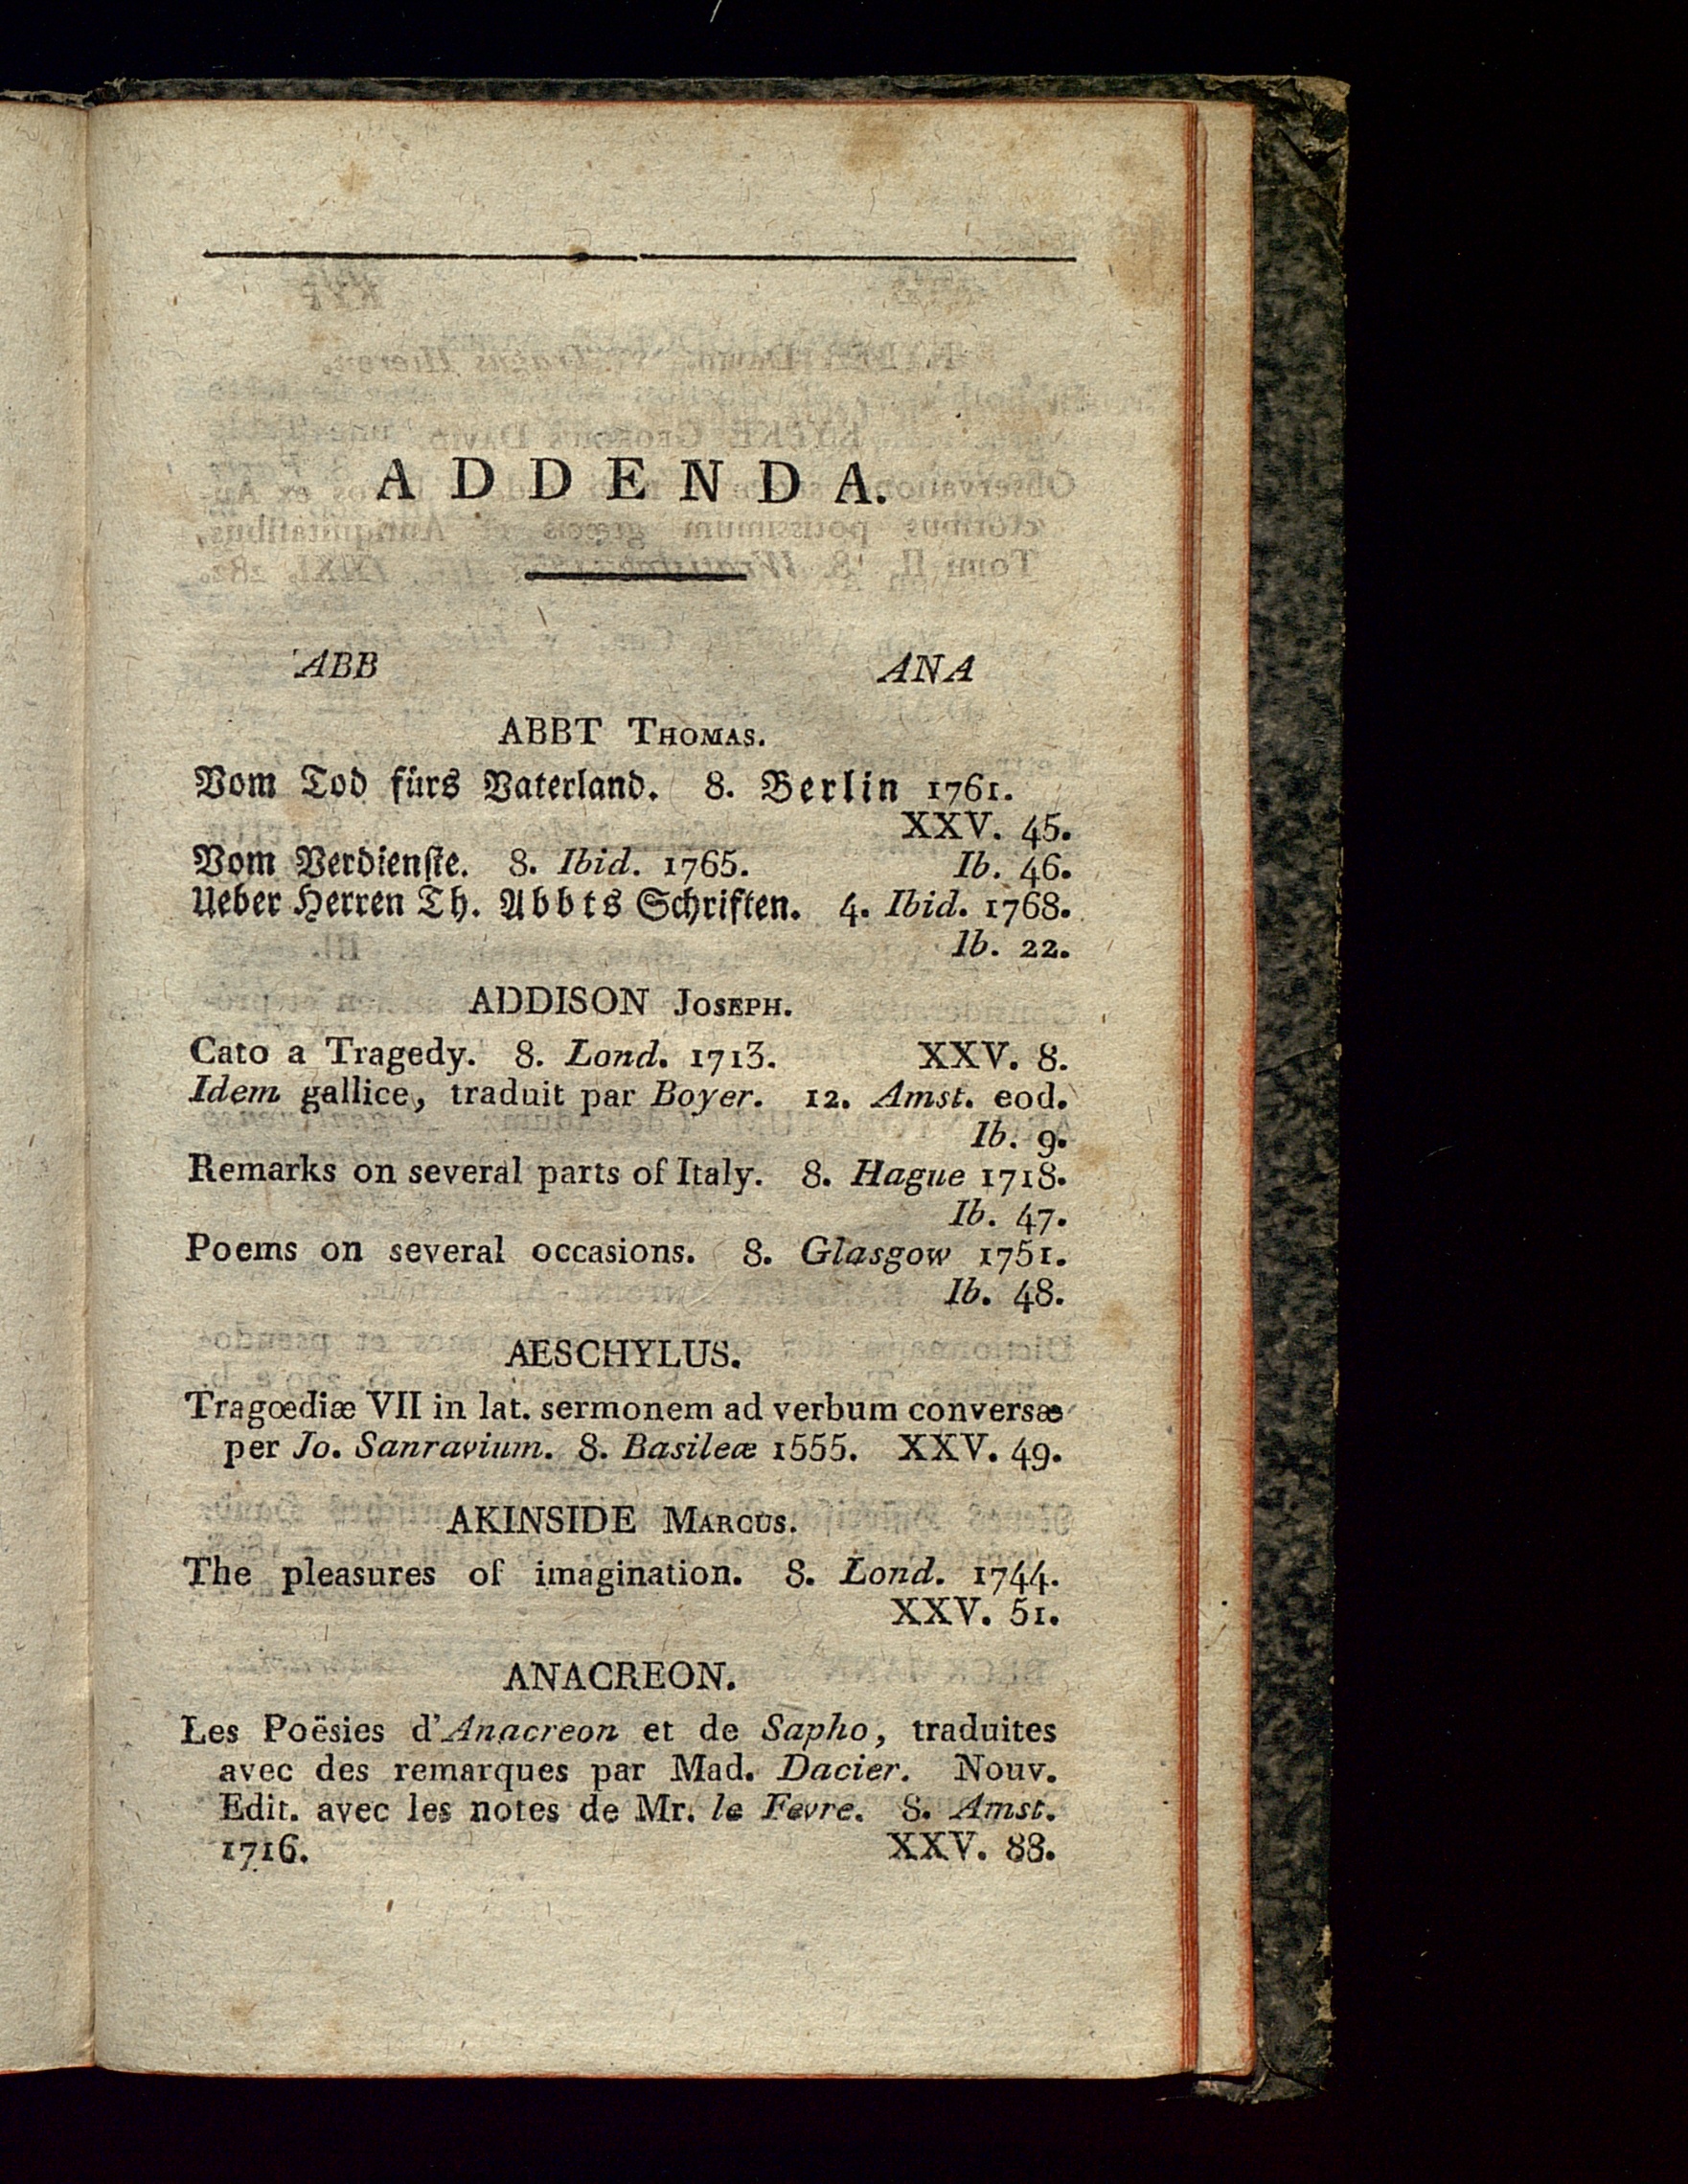 ADDENDA.
ABB ANA
ABBT THOMAS.
Vom Tod fürs Vaterland. 8. Berlin 1761.
XXV. 45.
Vom Verdienste. 8. Ibid. 1765. Ib. 46.
Ueber Herren Th. Abbts Schriften. 4. Ibid. 1768.
Ib. 22.
ADDISON JOSEPH.
Cato a Tragedy. 8. Lond. 1713. XXV. 8.
Idem gallice, traduit par Boyer. 12. Amst. eod.
Ib. 9.
Remarks on several parts of Italy. 8. Hague 1718.
Ib. 47.
Poems on several occasions. 8. Glasgow 1751.
Ib. 48.
AESCHYLUS.
Tragœdiæ VII in lat. sermonem ad verbum conversæ
per Jo. Sanravium. 8. Basileæ 1555. XXV. 49.
AKINSIDE MARCUS.
The pleasures of imagination. 8. Lond. 1744.
XXV. 51.
ANACREON.
Les Poësies d'Anacreon et de Sapho, traduites
avec des remarques par Mad. Dacier. Nouv.
Edit. avec les notes de Mr. le Fevre. 8. Amst.
1716. XXV. 88.